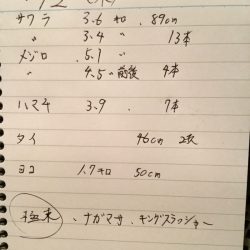 サワラ 3.6キロ 89cm
〃 3.4 〃 13本
メジロ 5.1 〃
〃 4.5〃前後 4本
ハマチ 3.9 7本
タイ 46cm 2枚
ヨコ 1.7キロ 50cm
ナガマサ、キングスラッシャー